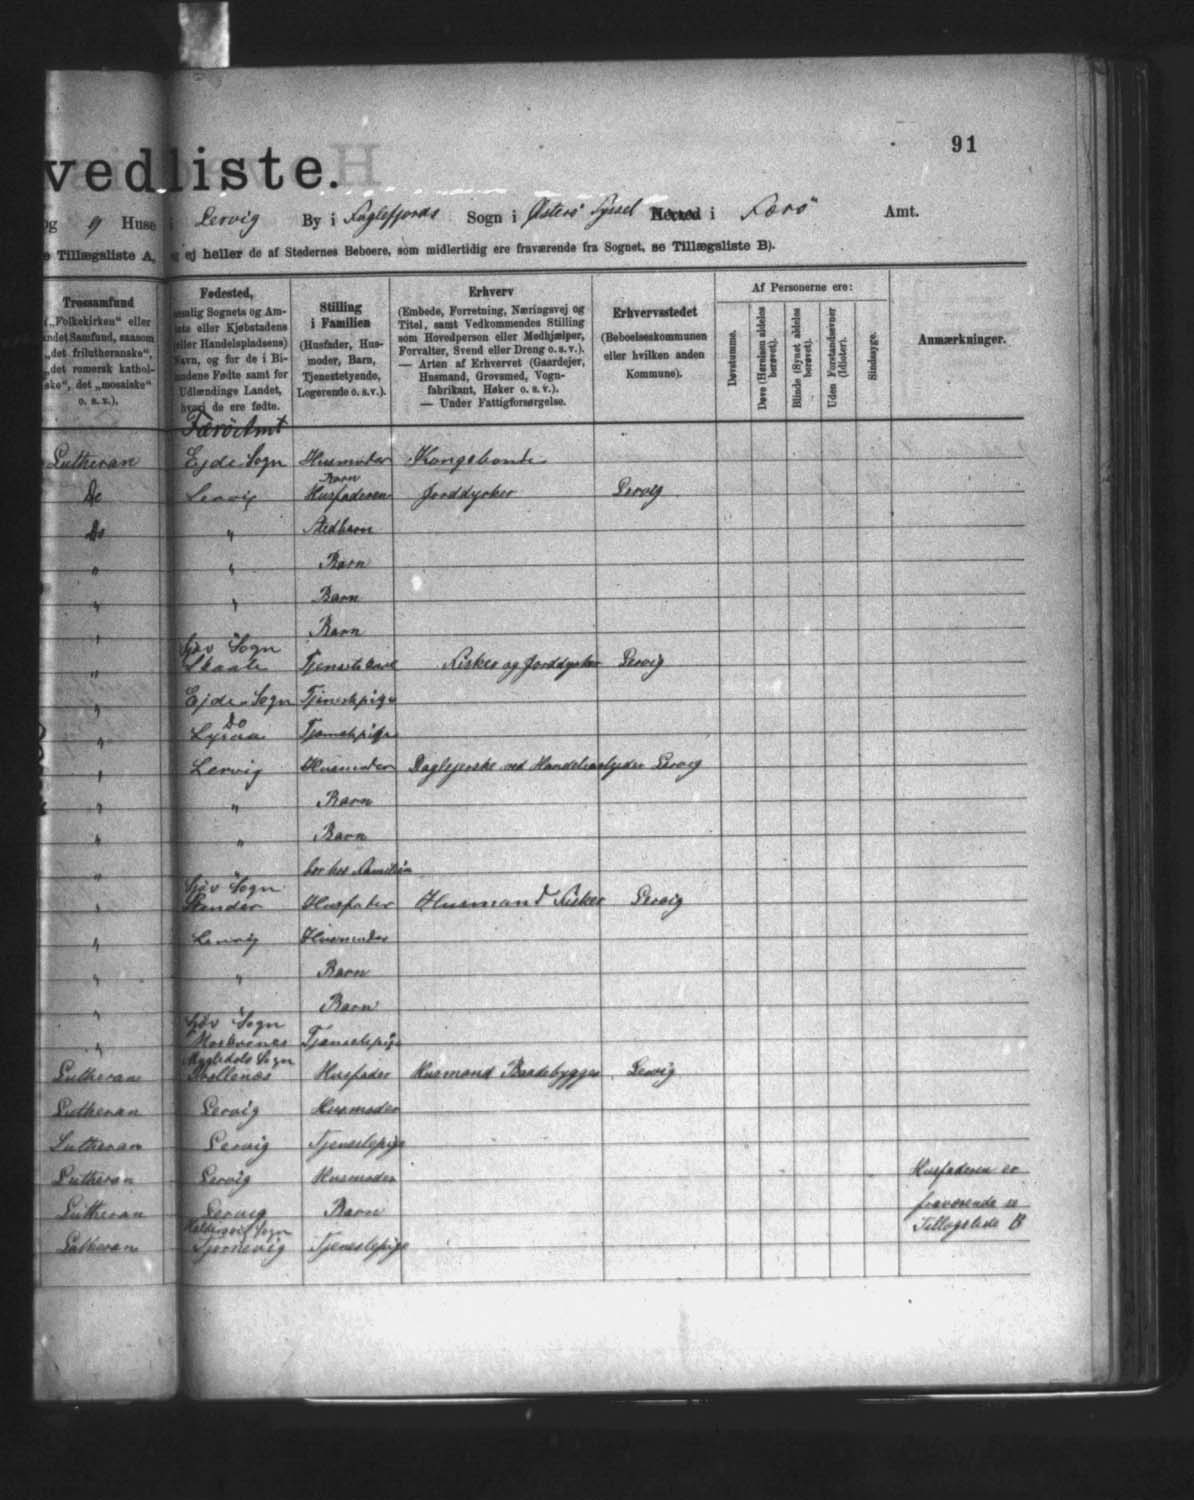 91
vedliste.
og 9 Huse i Lervig By i Fuglefjords Sogn i Østerø Syssel Herred i Færø Amt.
e Tillægsliste A, og ej heller de af Stedernes Beboere, som midlertidig ere fraværende fra Sognet, se Tillægsliste B).
Trossamfund
(„Folkekirken“ eller
andet Samfund, saasom
„det frilutheranske“,
„det romersk kathol-
ske“, det „mosaiske“
o. s. v.).
Fødested,
nemlig Sognets og Am-
tets eller Kjøbstadens
(eller Handelspladsens)
Navn, og for de i Bi-
landene Fødte samt for
Udlændinge Landet,
hvori de ere fødte.
Stilling
i Familien
(Husfader, Hus-
moder, Barn,
Tjenestetyende,
Logerende o. s. v.).
Erhverv
(Embede, Forretning, Næringsvej og
Titel, samt Vedkommendes Stilling
som Hovedperson eller Medhjælper,
Forvalter, Svend eller Dreng o. s. v.).
— Arten af Erhvervet (Gaardejer,
Husmand, Grovsmed, Vogn-
fabrikant, Høker o. s. v.).
— Under Fattigforsørgelse.
Erhvervsstedet
(Beboelseskommunen
eller hvilken anden
Kommune).
Af Personerne ere:
Døvstumme.
Døve (Hørelsen aldeles
berøvet).
Blinde (Synet aldeles
berøvet).
Uden Forstandsevner
(Idioter).
Sindssyge.
Anmærkninger.
Færø Amt
Lutheran Ejde Sogn Husmoder Kongsbonde
Barn
Do Lervig Husfaderen Jorddyrker Lervig
Do " Stedbarn
" " Barn
" " Barn
" " Barn
Sjov Sogn
" Skaale Fisker og Jorddyrker Lervig
" Ejde Sogn Tjenestepige
Do
" Tjenestepige
" Lervig Husmoder Daglejerske ved Lervig
" " Barn
" " Barn
" "
Sjov Sogn
" Strender Husfader Husmand Fisker Lervig
" Lervig Husmoder
" " Barn
" " Barn
Sjov Sogn
" Morkvenes Tjenestepige
Sogn
Lutheran Husfader Husmand Baadebygger Lervig
Lutheran Lervig Husmoder
Lutheran Lervig Tjenestepige
Lutheran Lervig Husmoder Husfaderen er
Lutheran Lervig Barn fraværende se
Haldersvig Sogn Tillægsliste B
Lutheran Tjørnevig Tjenestepige